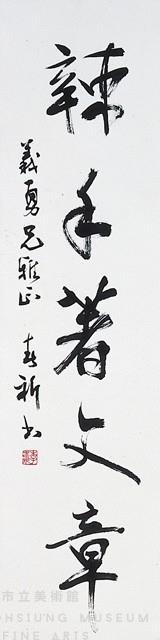 辣手著文章
義勇兄雅正 春新書
市立美術館
OHSIUNG MUSEUM
FINE ARTS